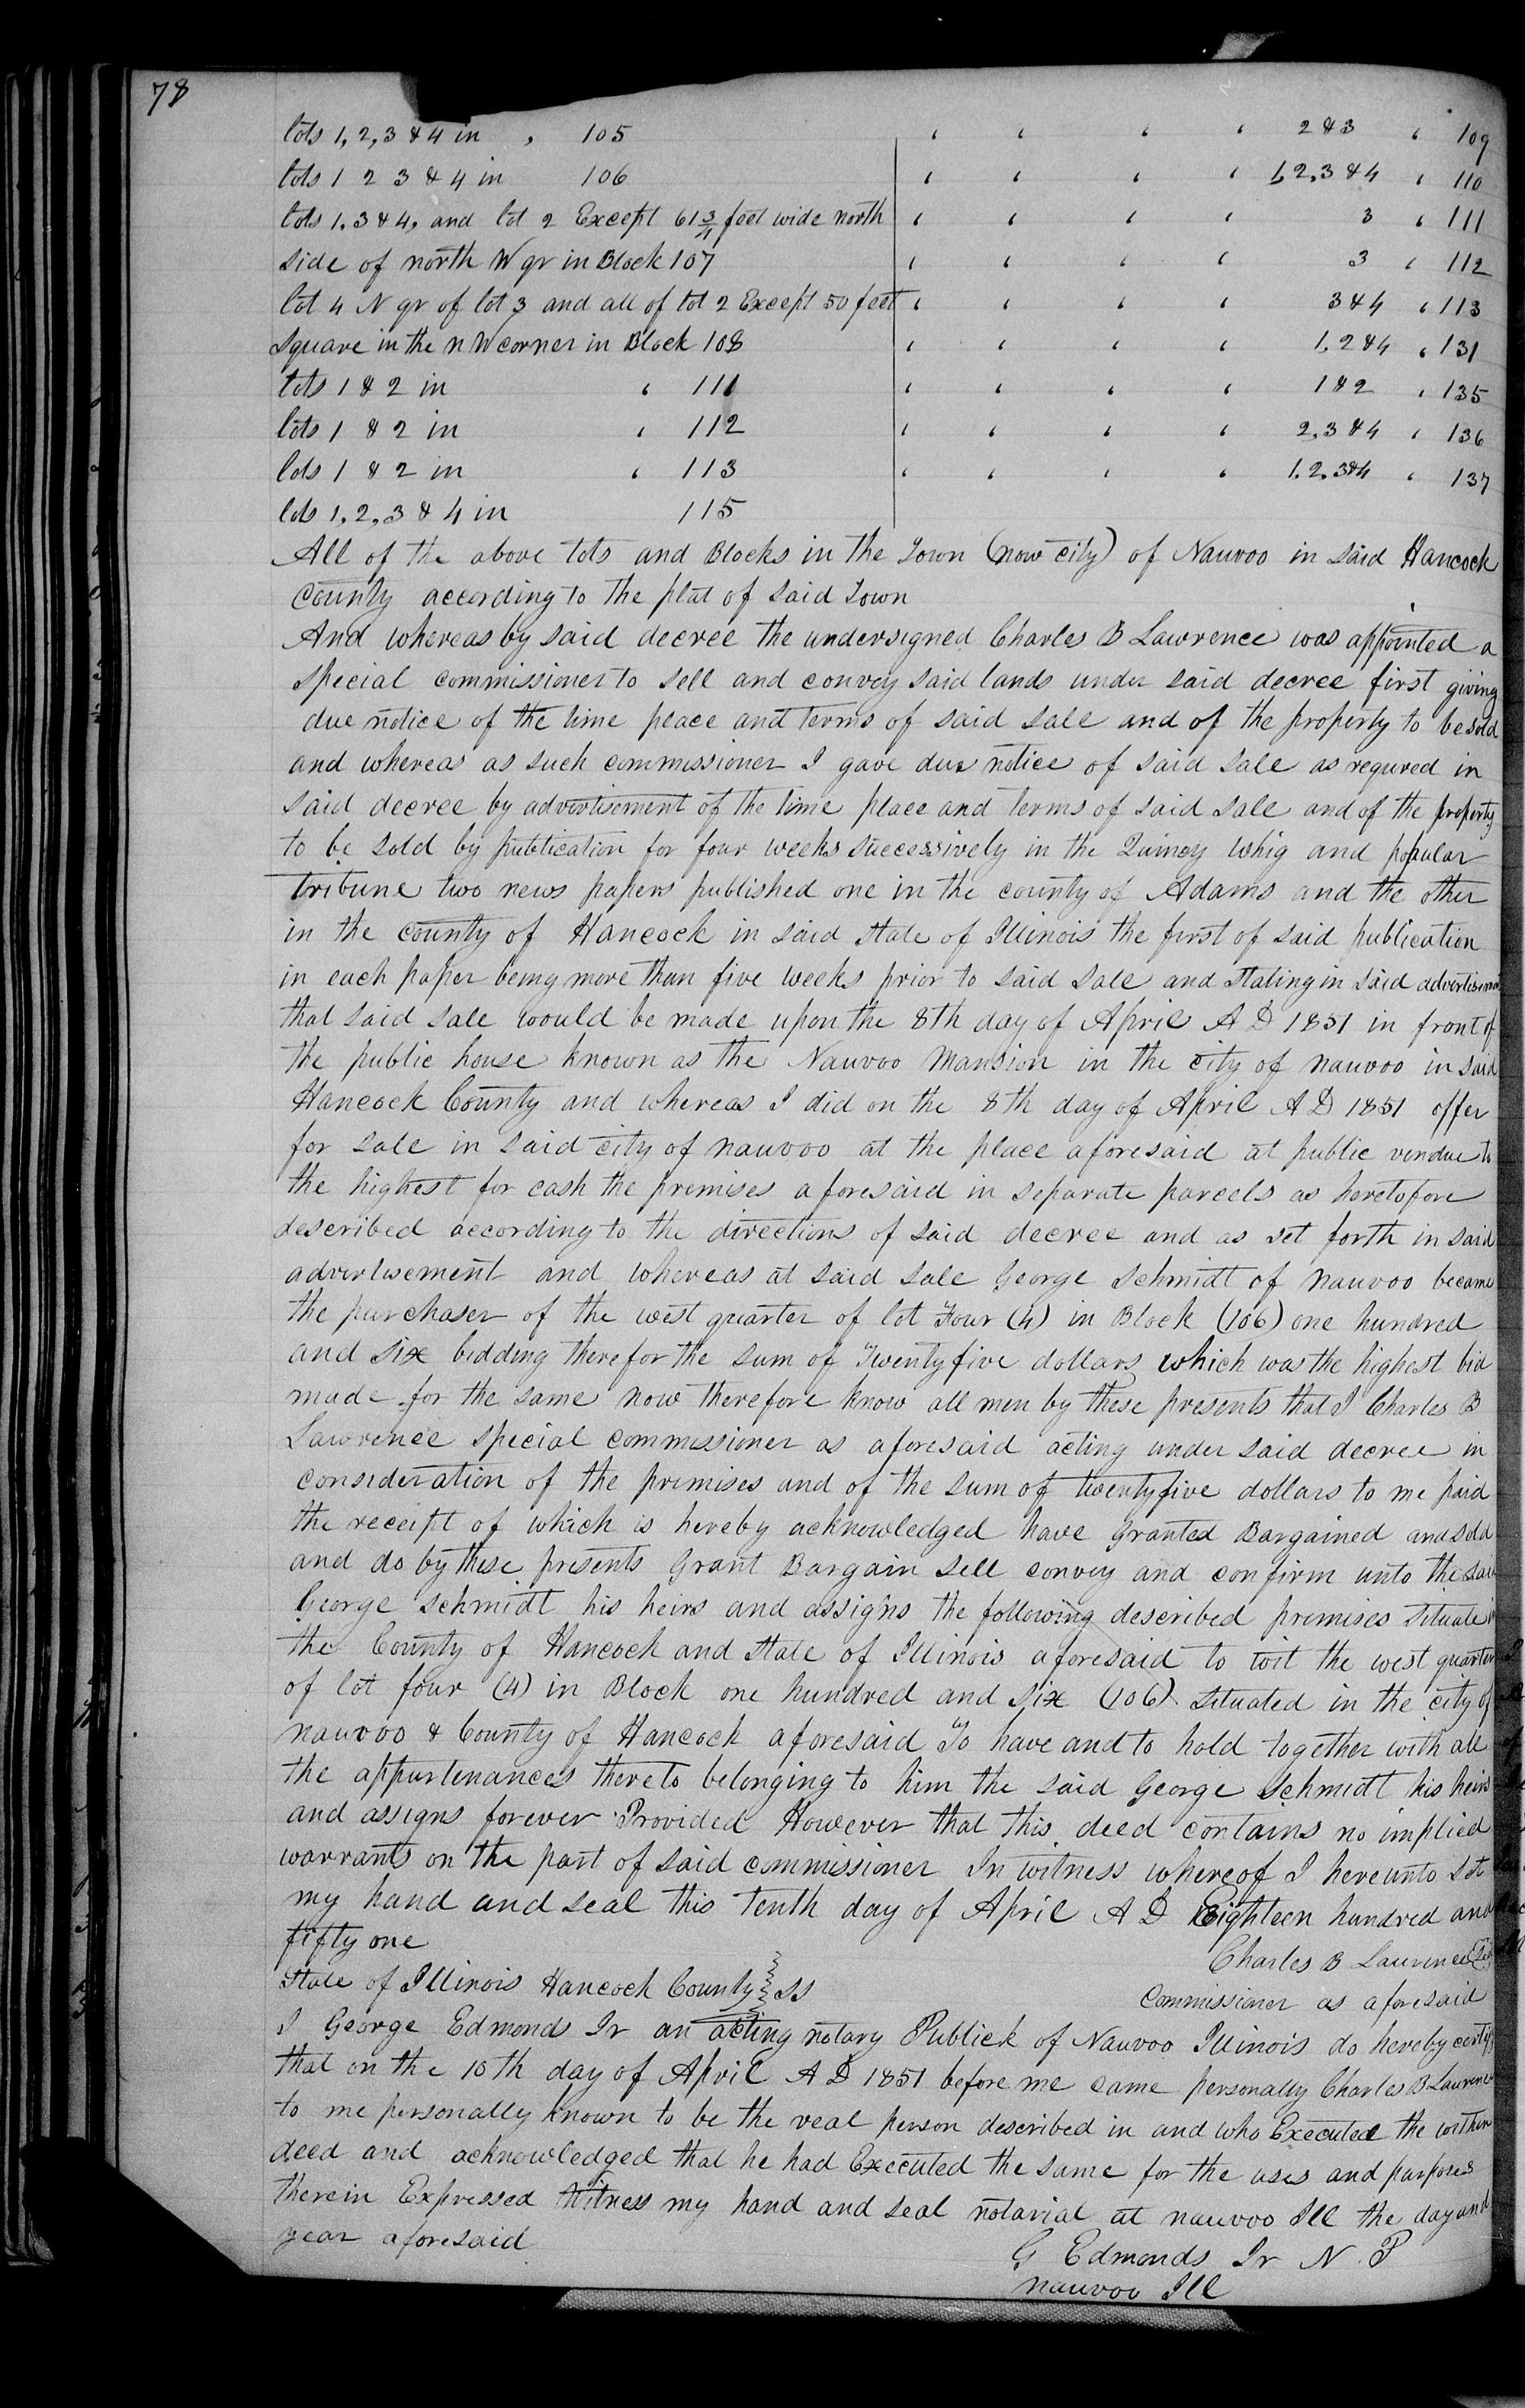 78
lots 1, 2, 3 & 4 in " 105 " " " " 2 & 3 " 109
lots 1 2 3 & 4 in 106 " " " " 1, 2, 3 & 4 " 110
lots 1, 3 & 4, and lot 2 Except 61 3/4 feet wide north " " " " 3 " 111
side of north W qr in Block 107 " " " " 3 " 112
lot 4 N qr of lot 3 and all of lot 2 Except 50 feet " " " " 3 & 4 " 113
square in the n W corner in Block 108 " " " " 1, 2 & 4 " 131
lots 1 & 2 in " 111 " " " " 1 & 2 " 135
lots 1 & 2 in " 112 " " " " 2, 3 & 4 " 136
lots 1 & 2 in " 113 " " " " 1, 2, 3 & 4 " 137
lots 1, 2, 3 & 4 in 115
All of the above lots and Blocks in the Town (now city) of Nauvoo in said Hancock
County according to the plat of said Town
And whereas by said decree the undersigned Charles B Lawrence was appointed a
special commissioner to sell and convey said lands under said decree first giving
due notice of the time place and terms of said sale and of the property to be sold
and whereas as such commissioner I gave due notice of said sale as requred in
said decree by advertisement of the time place and terms of said sale and of the property
to be sold by publication for four weeks successively in the Quincy Whig and popular
tribune two news papers published one in the county of Adams and the other
in the county of Hancock in said State of Illinois the first of said publication
in each paper being more than five weeks prior to said sale and stating in said advertisement
that said sale would be made upon the 8th day of April A D 1851 in front of
the public house known as the Nauvoo Mansion in the city of nauvoo in said
Hancock County and whereas I did on the 8th day of April A D 1851 offer
for sale in said city of nauvoo at the place aforesaid at public vendue to
the highest for cash the premises aforesaid in separate parcels as heretofore
described according to the directions of said decree and as set forth in said
advertisement and whereas at said sale George Schmidt of nauvoo became
the purchaser of the west quarter of lot Four (4) in Block (106) one hundred
and six bidding therefor the sum of Twenty five dollars which was the highest bid
made for the same now therefore know all men by these presents that I Charles B
Lawrence special commissioner as aforesaid acting under said decree in
consideration of the premises and of the sum of twenty five dollars to me paid
the receipt of which is hereby acknowledged have Granted Bargained and sold
and do by these presents Grant Bargain sell convey and confirm unto the said
George Schmidt his heirs and assigns the following described premises situate in
the County of Hancock and State of Illinois aforesaid to wit the west quarter
of lot four (4) in Block one hundred and six (106) situated in the city of
nauvoo & County of Hancock aforesaid To have and to hold together with all
the appurtenances thereto belonging to him the said George Schmidt his heirs
and assigns forever Provided However that this deed contains no implied
warrants on the part of said commissioner In witness whereof I hereunto set
my hand and seal this tenth day of April A D Eighteen hundred and
fifty one
Charles B Lawrence
State of Illinois Hancock County } SS
Commissioner as aforesaid
I George Edmonds Jr an acting notary Publick of Nauvoo Illinois do hereby certify
that on the 10th day of April A D 1851 before me came personally Charles B Lawrence
to me personally known to be the real person described in and who Executed the within
deed and acknowledged that he had Executed the same for the uses and purposes
therein Expressed Witness my hand and seal notarial at nauvoo Ill the day and
year aforesaid
G Edmonds Jr N. P
nauvoo Ill